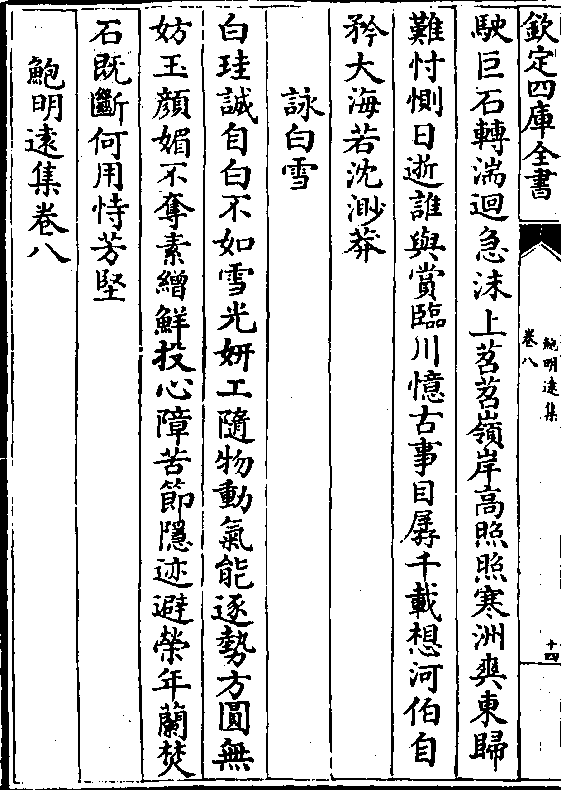 欽定四庫全書
鮑明遠集
卷八
十四
駛巨石轉湍迴急沫上苕苕嶺岸高照照寒洲爽東歸
難忖惻日逝誰與賞臨川憶古事目孱千載想河伯自
矜大海若沈渺莽
詠白雪
白珪誠自白不如雪光妍工隨物動氣能逐勢方圓無
妨玉顔媚不奪素繒鮮投心障苦節隱迹避榮年蘭焚
石既斷何用恃芳堅
鮑明遠集卷八